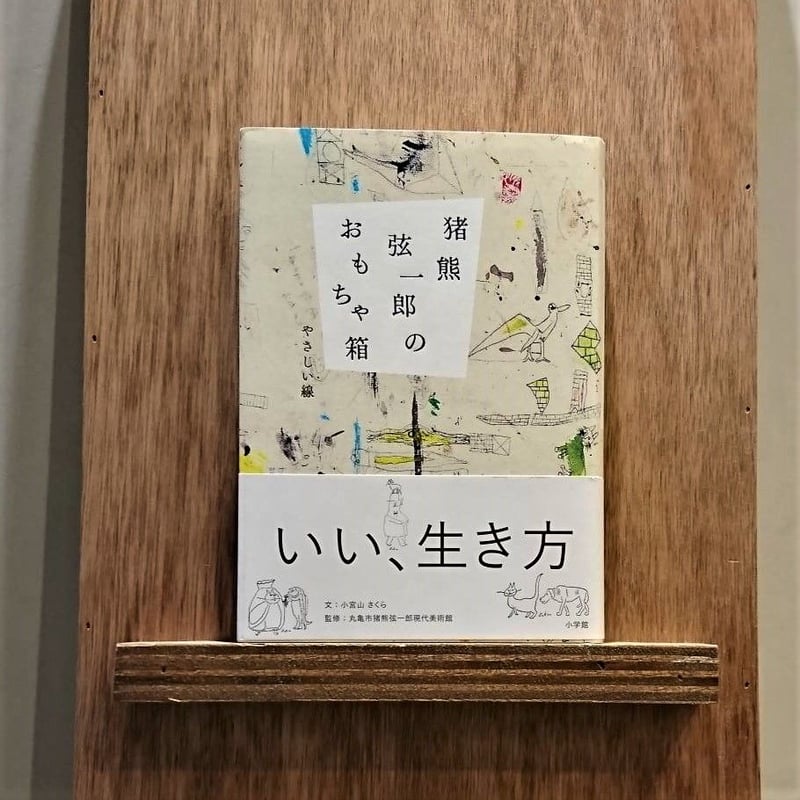 猪熊
弦一郎の
おもちゃ箱
やさしい線
いい、生き方
文：小宮山 さくら
監修：丸亀市猪熊弦一郎現代美術館
小学館